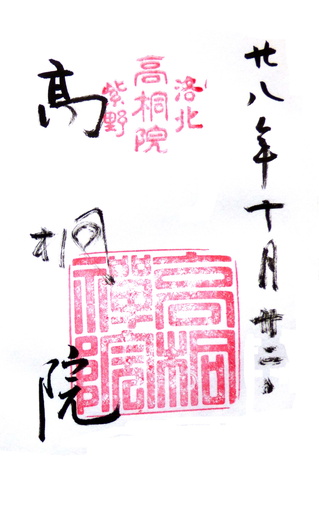 廿八年十月
洛北
高桐院
紫野
高桐院
高桐
禪院